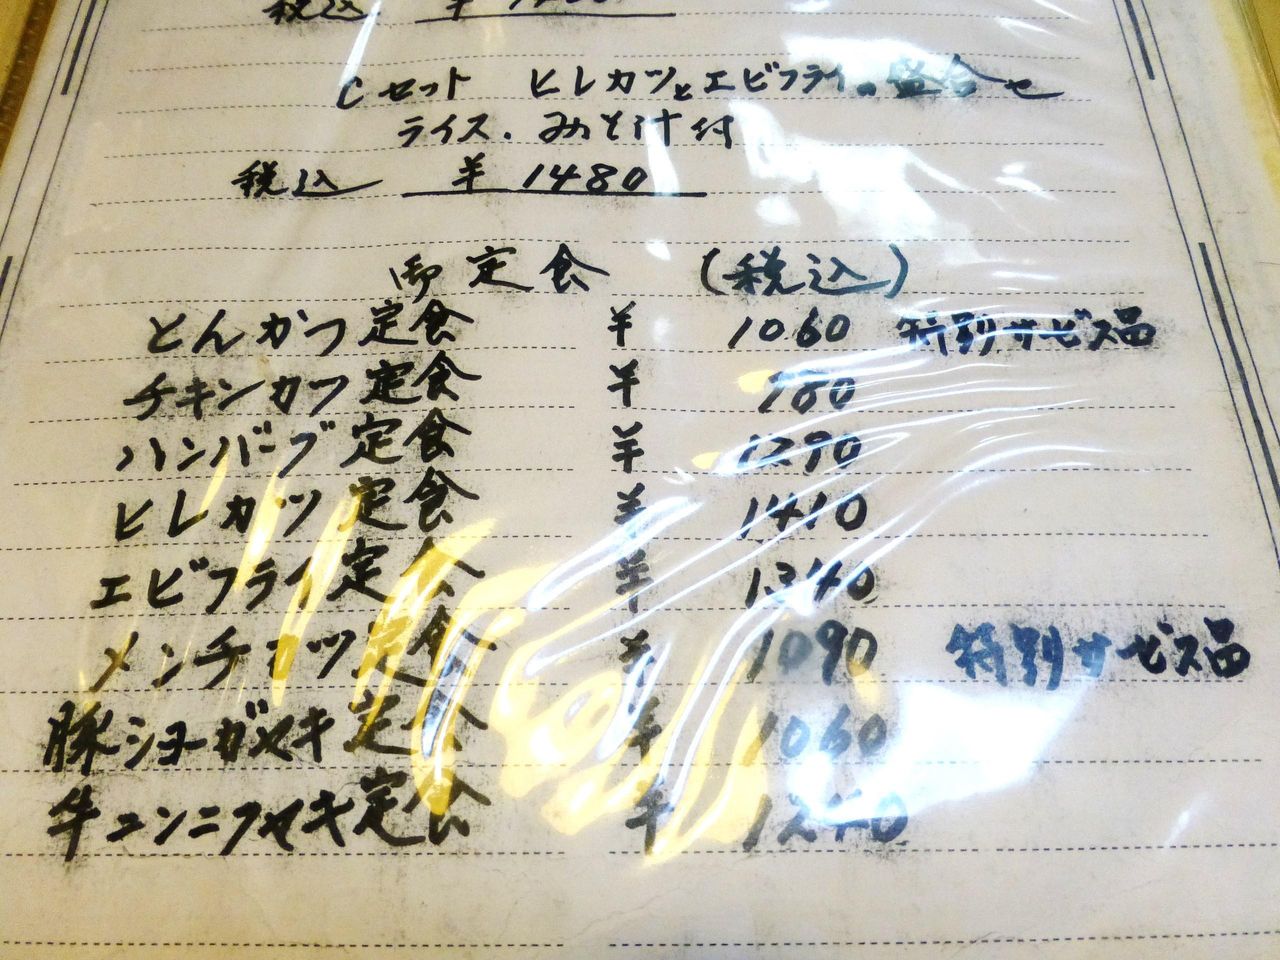 税込 ¥
Cセット ヒレカツとエビフライの盛合せ
ライス．みそ汁付
税込 ¥ 1480
御定食 (税込)
とんかつ定食 ¥ 1060 特別サービス品
チキンカツ定食 ¥ 980
ハンバーグ定食 ¥ 1290
ヒレカツ定食 ¥ 1410
エビフライ定食 ¥ 1340
メンチカツ定食 ¥ 1090 特別サービス品
豚ショーガヤキ定食 ¥ 1060
牛ニンニクヤキ定食 ¥